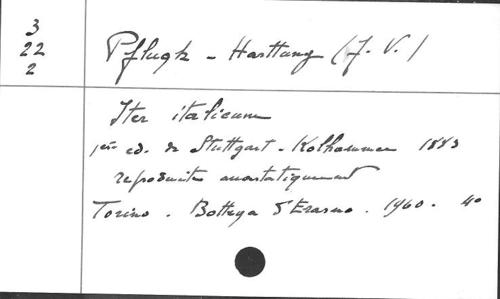 3
22
2
Pflugk - Harttung (J. V.)
Iter italicum
1ère ed. de Stuttgart - Kolhammer 1883
reproduite anastatiquement
Torino. Bottega d'Erasmo. 1960. 4º